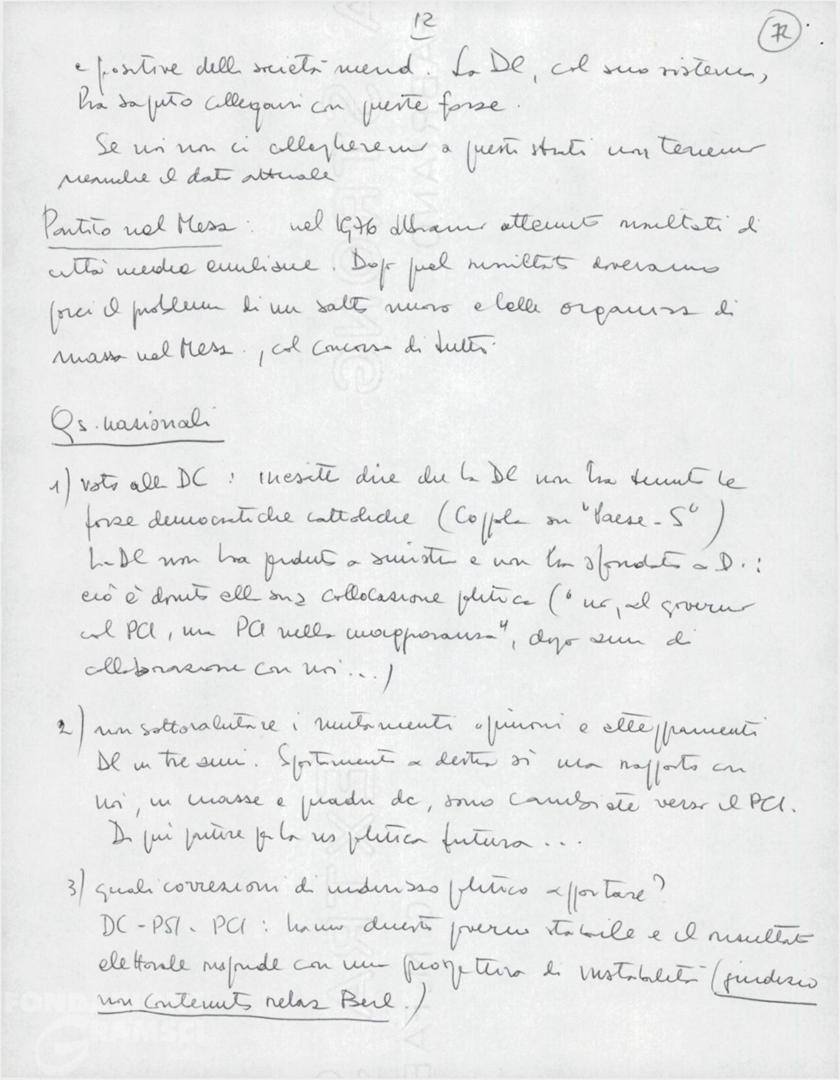 12
72
e positive della società merid. La DC, col suo sistema,
ha saputo collegarsi con queste forze.
Se noi non ci collegheremo a questi strati non terremo
neanche il dato attuale
Partito nel Mezz.: nel 1976 abbiamo ottenuto risultati di
città media emiliana. Dopo quel risultato dovevamo
porci il problema di un salto nuovo e delle organizz. di
massa nel Mezz., col concorso di tutti.
Qs. nazionali
1) voto alla DC: inesatto dire che la DC non ha tenuto le
forze democratiche cattoliche (Coppola su "Paese-S")
La DC non ha perduto a sinistra e non ha sfondato a D.:
ciò è dovuto alla sua collocazione politica ("no, al governo
col PCI, un PCI nella maggioranza", dopo anni di
collaborazione con noi...)
2) non sottovalutare i mutamenti opinioni e atteggiamenti
DC in tre anni. Spostamenti a destra sì ma rapporto con
noi, in masse e quadri dc, sono cambiate verso il PCI.
Di qui partire per la ns politica futura...
3) quali correzioni di indirizzo politico apportare?
DC-PSI-PCI: hanno chiesto governo stabile e il risultato
elettorale risponde con una prospettiva di instabilità (giudizio
non contenuto relaz Berl.)
FONDAZIONE
GRAMSCI